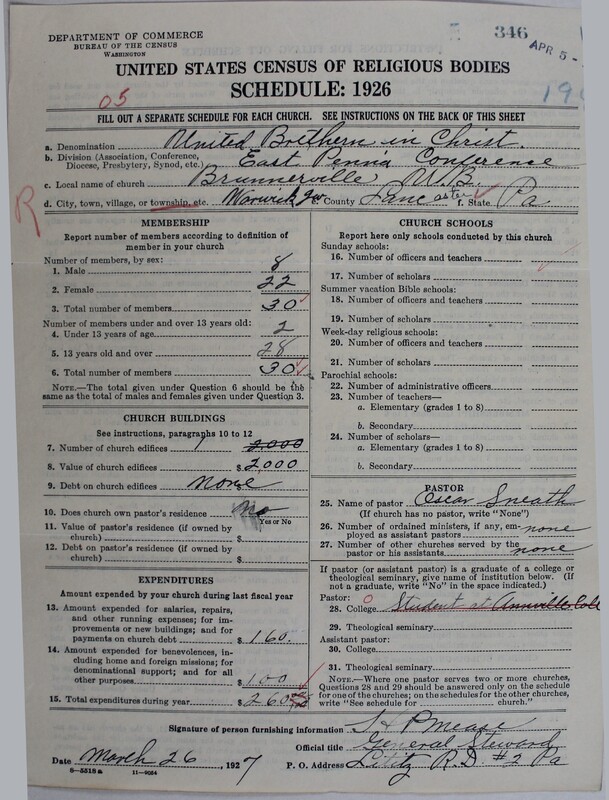 DEPARTMENT OF COMMERCE
BUREAU OF THE CENSUS
WASHINGTON
346
APR 5-
UNITED STATES CENSUS OF RELIGIOUS BODIES
SCHEDULE: 1926
05
FILL OUT A SEPARATE SCHEDULE FOR EACH CHURCH. SEE INSTRUCTIONS ON THE BACK OF THIS SHEET
a. Denomination United Brethern in Christ.
b. Division (Association, Conference, Diocese, Presbytery, Synod, etc.) East Penn'a Conference
c. Local name of church Brunnerville U.B.
R
d. City, town, village, or township, etc. Warwick County Lancaster f. State Pa
MEMBERSHIP
Report number of members according to definition of
member in your church
Number of members, by sex:
1. Male 8
2. Female 22
3. Total number of members 30
Number of members under and over 13 years old:
4. Under 13 years of age 2
5. 13 years old and over 28
6. Total number of members 30
NOTE.—The total given under Question 6 should be the
same as the total of males and females given under Question 3.
CHURCH BUILDINGS
See instructions, paragraphs 10 to 12
7. Number of church edifices 1 2,000
8. Value of church edifices $ 2,000
9. Debt on church edifices $ None
10. Does church own pastor's residence No
Yes or No
11. Value of pastor's residence (if owned by
church) $
12. Debt on pastor's residence (if owned by
church) $
EXPENDITURES
Amount expended by your church during last fiscal year
13. Amount expended for salaries, repairs,
and other running expenses; for im-
provements or new buildings; and for
payments on church debt $ 160.
14. Amount expended for benevolences,
including home and foreign missions; for
denominational support; and for all
other purposes $ 100
15. Total expenditures during year $ 260
CHURCH SCHOOLS
Report here only schools conducted by this church
Sunday schools:
16. Number of officers and teachers
17. Number of scholars
Summer vacation Bible schools:
18. Number of officers and teachers
19. Number of scholars
Week-day religious schools:
20. Number of officers and teachers
21. Number of scholars
Parochial schools:
22. Number of administrative officers
23. Number of teachers—
a. Elementary (grades 1 to 8)
b. Secondary
24. Number of scholars—
a. Elementary (grades 1 to 8)
b. Secondary
PASTOR
25. Name of pastor Oscar Sneath
(If church has no pastor, write "None")
26. Number of ordained ministers, if any, em-
ployed as assistant pastors none
27. Number of other churches served by the
pastor or his assistants none
If pastor (or assistant pastor) is a graduate of a college or
theological seminary, give name of institution below. (If
not a graduate, write "No" in the space indicated.)
Pastor: 0
28. College Student at Annville Col
29. Theological seminary
Assistant pastor:
30. College
31. Theological seminary
NOTE.—Where one pastor serves two or more churches,
Questions 28 and 29 should be answered only on the schedule
for one of the churches; on the schedules for the other churches,
write "See schedule for church."
Signature of person furnishing information H P Mease
Official title General Steward
Date March 26, 1927 P. O. Address Lititz R.D. #2 Pa
8-5518 a 11-9054